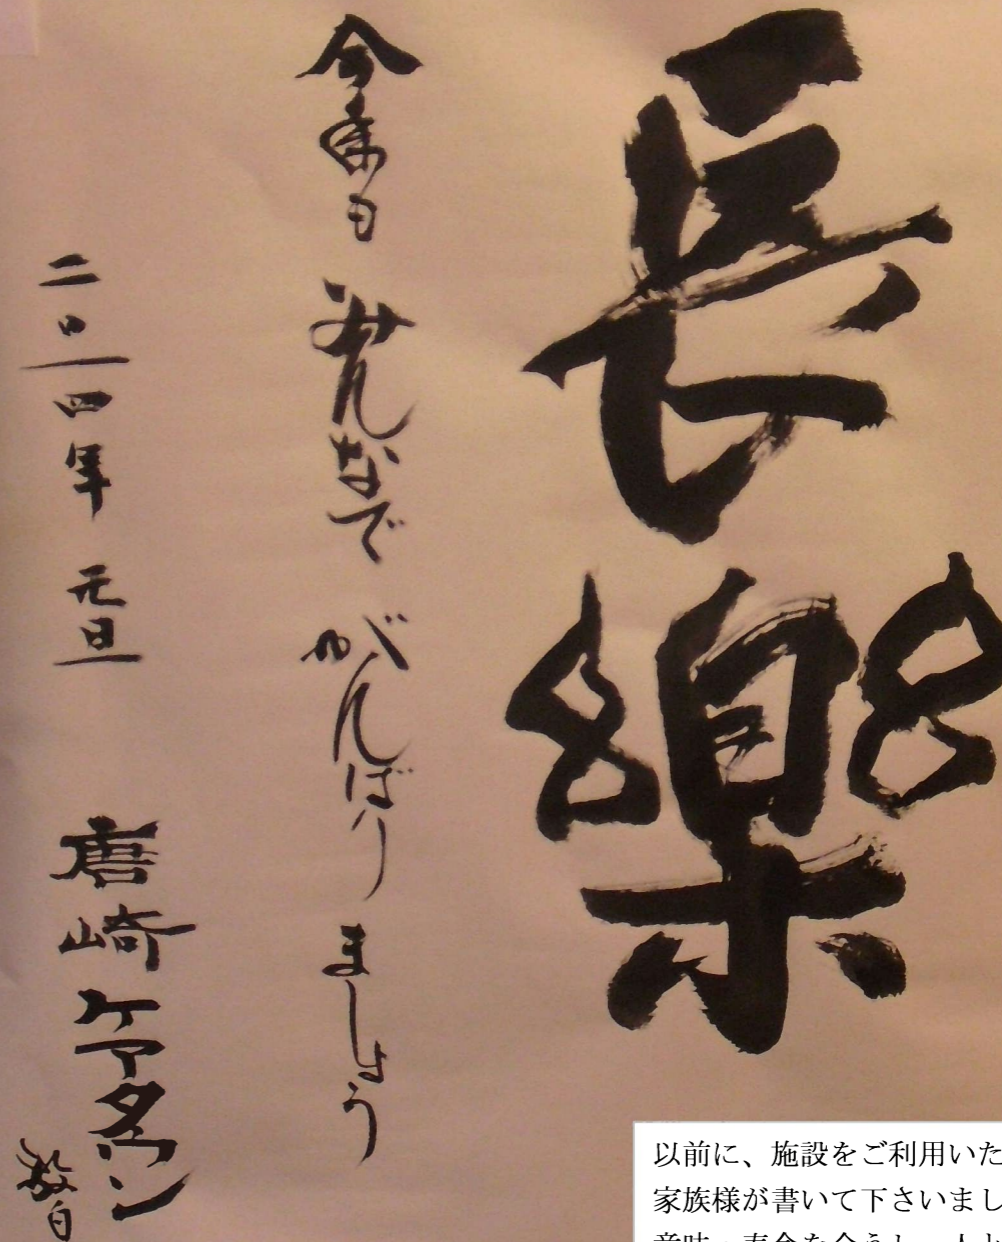 長樂
今年も みんなで がんばり ましょう
二〇一四年 元旦 唐崎ケアタウン 敬白
以前に、施設をご利用いた
家族様が書いて下さいまし